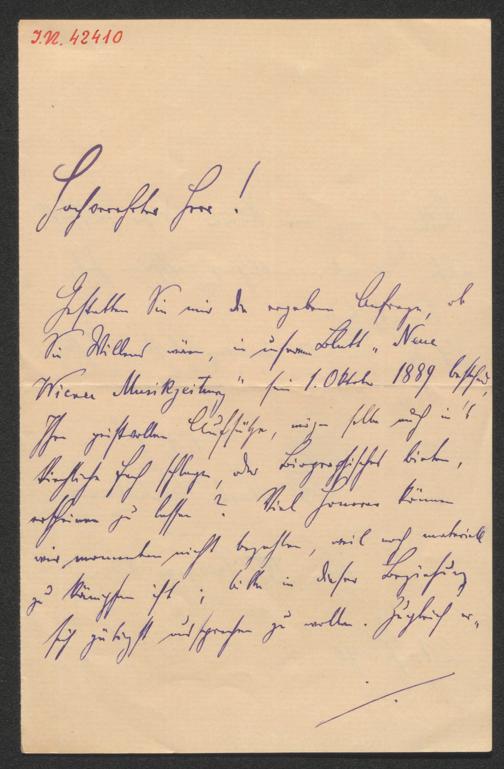 I.N. 42410
Hochverehrter Herr!
Gestatten Sie mir die ergebene Anfrage, ob
Sie Willens wären, in unserem Blatt „Neue
Wiener Musikzeitung" seit 1. Oktober 1889 bestehend,
Ihre geistvollen Aufsätze, mögen selbe auch in's
kirchliche Fach schlagen, oder Biographisches bieten,
erscheinen zu lassen? Viel Honorar können
wir momentan nicht bezahlen, weil noch materiell
zu kämpfen ist; bitte in dieser Beziehung
sich gütigst aussprechen zu wollen. Zugleich er-